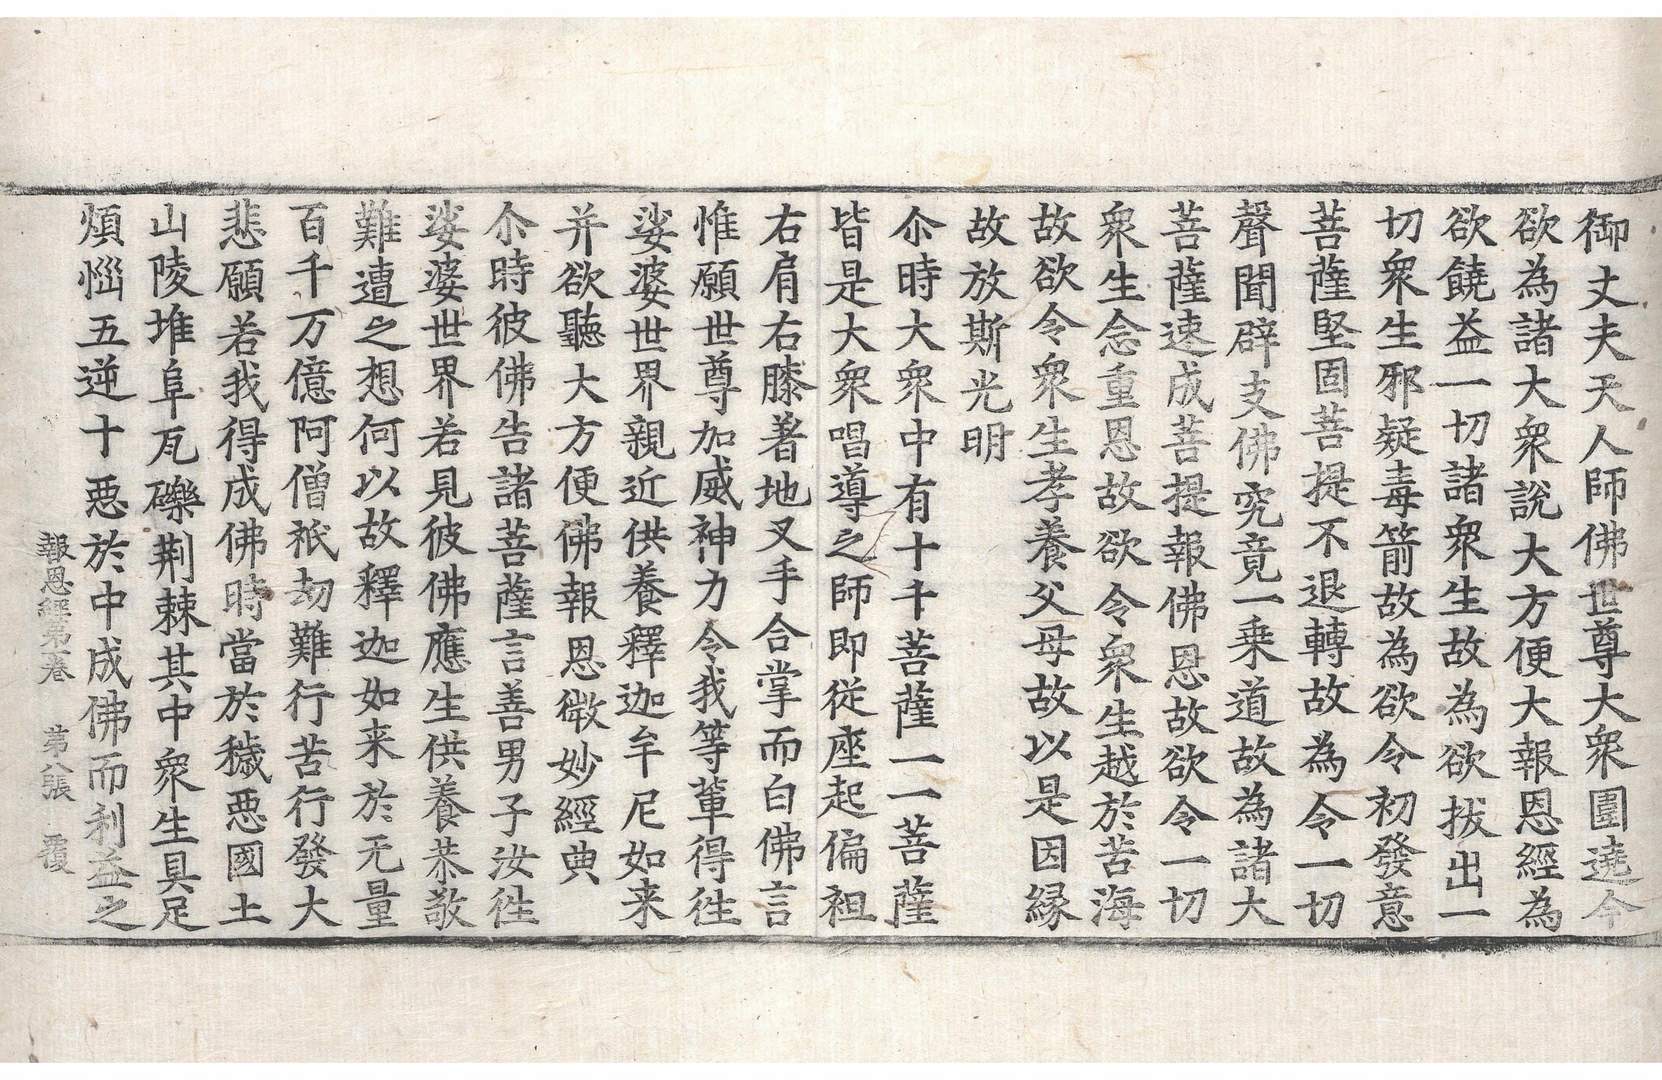 御丈夫天人師佛世尊大衆圍遶今
欲為諸大衆說大方便大報恩經為
欲饒益一切諸衆生故為欲拔出一
切衆生邪疑毒箭故為欲令初發意
菩薩堅固菩提不退轉故為令一切
聲聞辟支佛究竟一乗道故為諸大
菩薩速成菩提報佛恩故欲令一切
衆生念重恩故欲令衆生越於苦海
故欲令衆生孝養父母故以是因縁
故放斯光明
尒時大衆中有十千菩薩一一菩薩
皆是大衆唱導之師即從座起偏袒
右肩右膝著地叉手合掌而白佛言
惟願世尊加威神力令我等輩得徃
娑婆世界親近供養釋迦牟尼如来
并欲聽大方便佛報恩微妙經典
尒時彼佛告諸菩薩言善男子汝徃
娑婆世界若見彼佛應生供養恭敬
難遭之想何以故釋迦如来於无量
百千万億阿僧祇劫難行苦行發大
悲願若我得成佛時當於穢惡國土
山陵堆阜瓦礫荆棘其中衆生具足
煩惱五逆十惡於中成佛而利益之
報恩經第一卷 第八張 覆